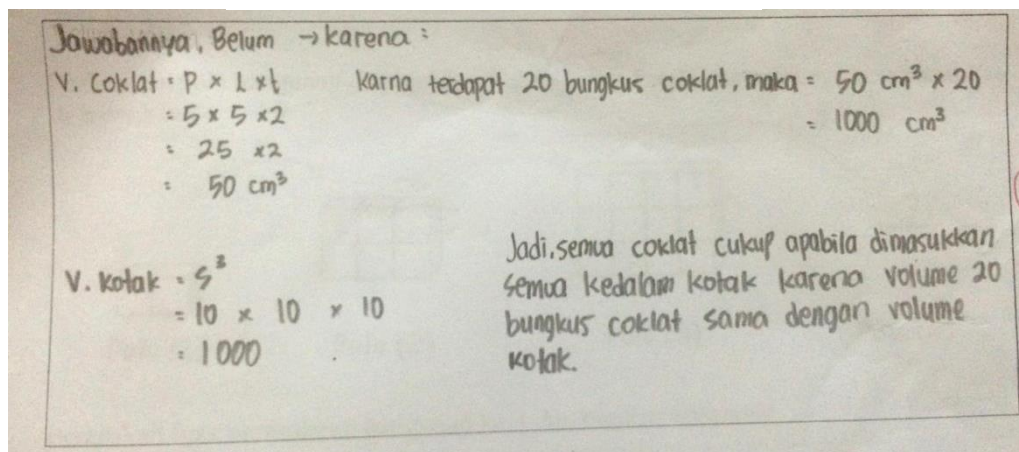 Jawabannya, Belum → karena :
V. Coklat = P x L x t
= 5 x 5 x 2
= 25 x 2
= 50 cm³
Karna terdapat 20 bungkus coklat, maka = 50 cm³ x 20
= 1000 cm³
V. Kotak = S³
= 10 x 10 x 10
= 1000
Jadi, semua coklat cukup apabila dimasukkan
semua kedalam kotak karena volume 20
bungkus coklat sama dengan volume
kotak.